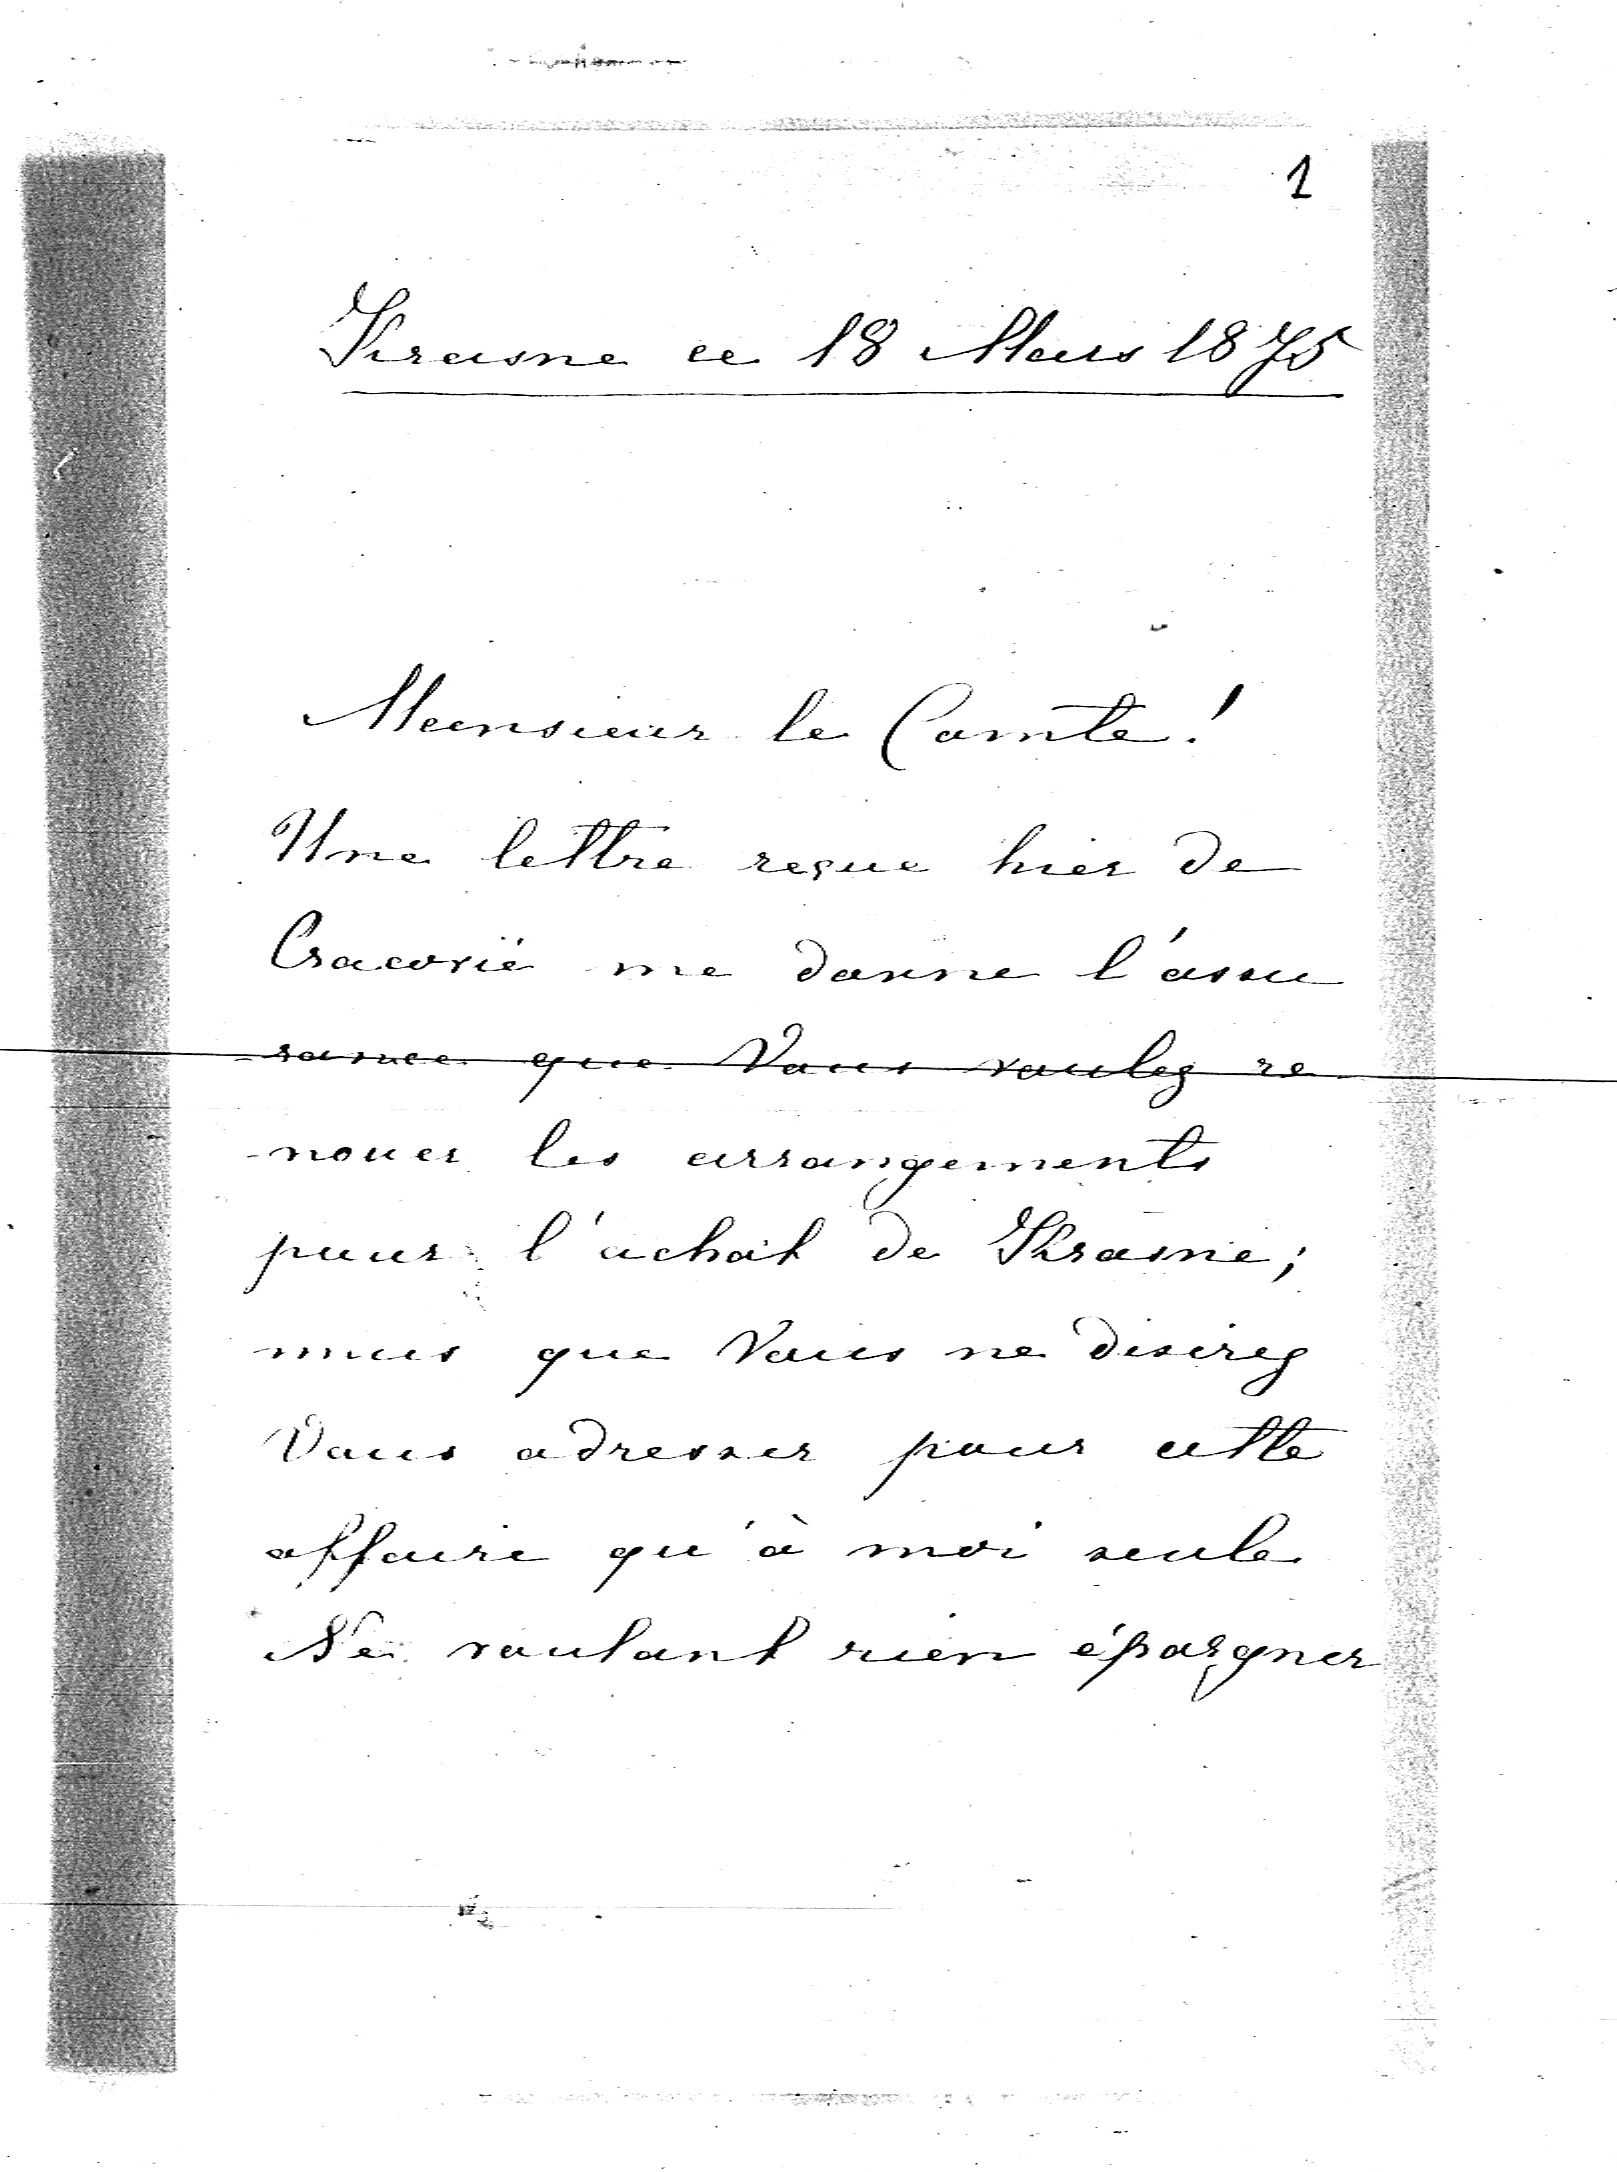 1
Krasne ce 18 Mars 1875
Monsieur le Comte!
Une lettre reçue hier de
Cracovie me donne l'assu
rance que Vous voulez re
-nouer les arrangements
pour l'achat de Krasne;
mais que Vous ne désirez
Vous adresser pour cette
affaire qu'à moi seule.
Ne voulant rien épargner